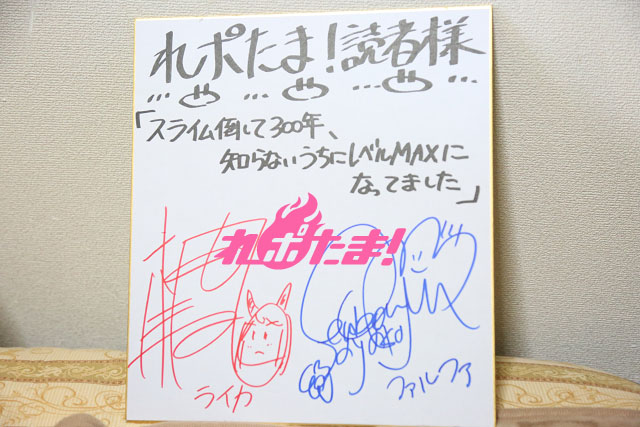 れポたま!読者様
「スライム倒して300年、
知らないうちにレベルMAXに
なってました」
れポたま!
ライカ
ファルファ